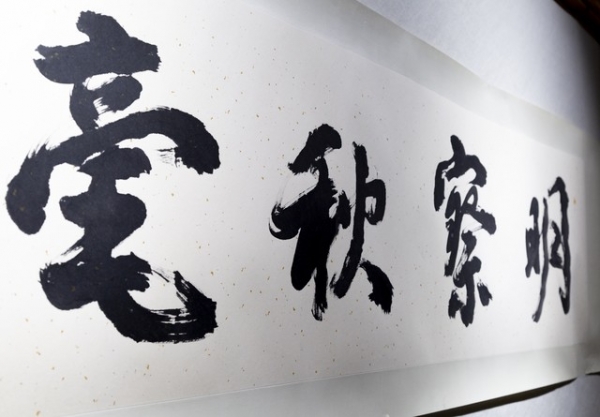 明察秋毫